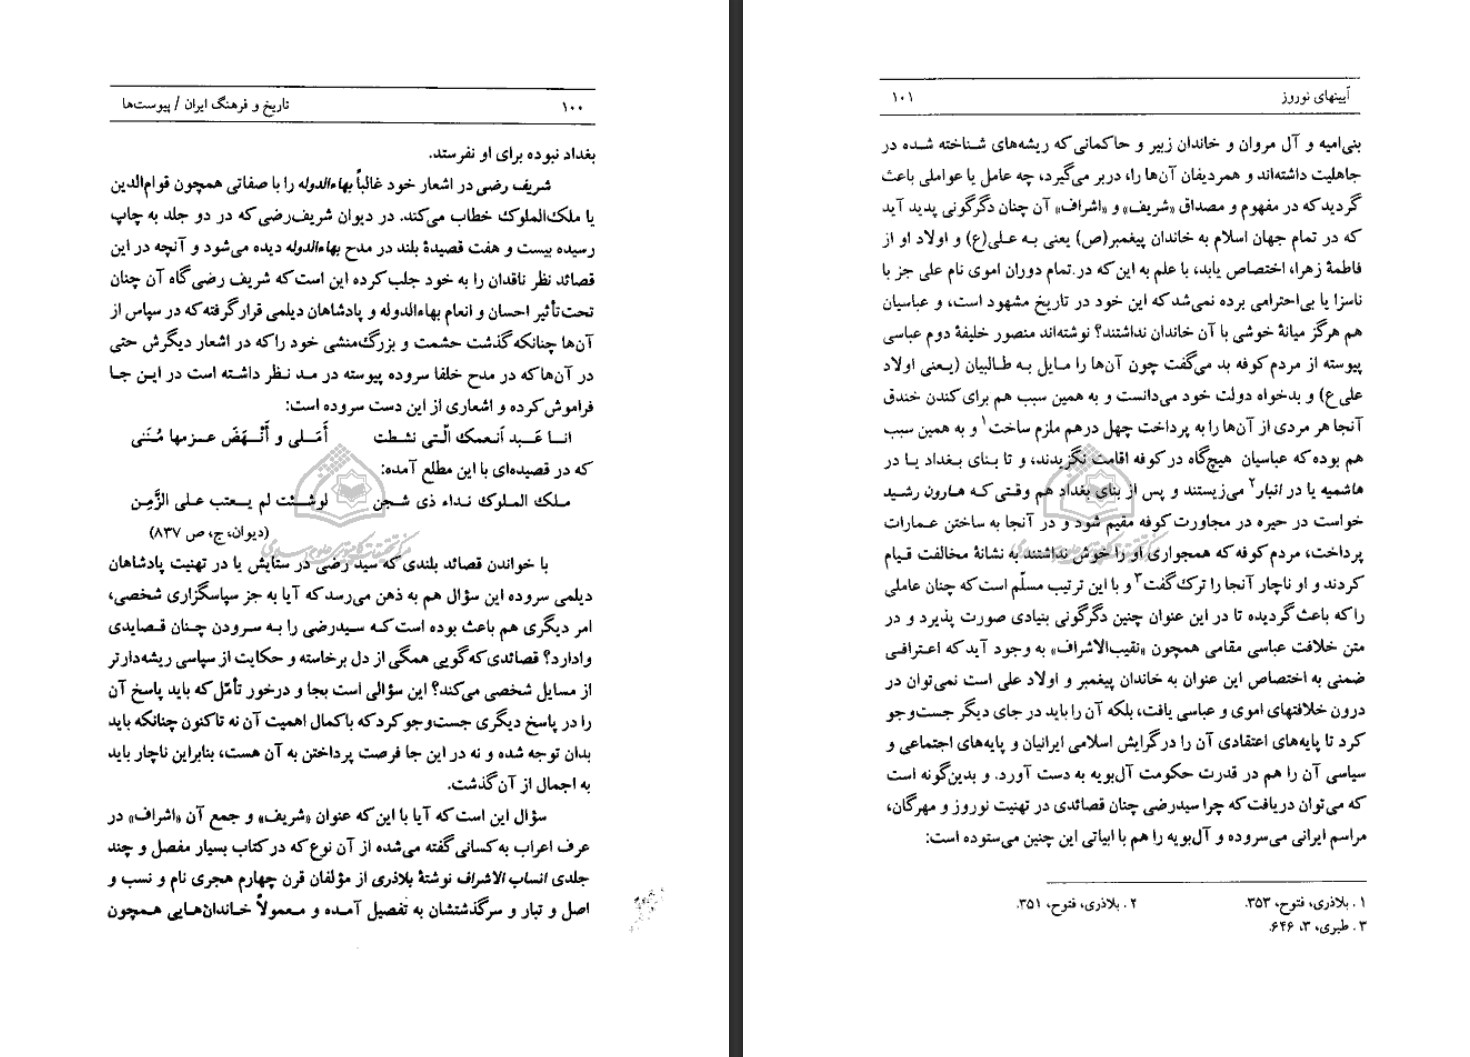 ۱۰۰ تاریخ و فرهنگ ایران / پیوست‌ها
بغداد نبوده برای او نفرستد.
شریف رضی در اشعار خود غالباً بهاءالدوله را با صفاتی همچون قوام‌الدین
یا ملک‌الملوک خطاب می‌کند. در دیوان شریف‌رضی که در دو جلد به چاپ
رسیده بیست و هفت قصیدهٔ بلند در مدح بهاءالدوله دیده می‌شود و آنچه در این
قصائد نظر ناقدان را به خود جلب کرده این است که شریف رضی گاه آن چنان
تحت‌تأثیر احسان و انعام بهاءالدوله و پادشاهان دیلمی قرار گرفته که در سپاس از
آن‌ها چنانکه گذشت حشمت و بزرگ‌منشی خود را که در اشعار دیگرش حتی
در آن‌ها که در مدح خلفا سروده پیوسته در مد نظر داشته است در این جا
فراموش کرده و اشعاری از این دست سروده است:
انا عَبد أنعمک الّتی نشطت أَمَلی و أَنْهَضَ عزمها مُنَنی
که در قصیده‌ای با این مطلع آمده:
ملک الملوک نداء ذی شجن لوشئت لم یعتب علی الزَّمِن
(دیوان، ج، ص ۸۳۷)
با خواندن قصائد بلندی که سید رضی در ستایش یا در تهنیت پادشاهان
دیلمی سروده این سؤال هم به ذهن می‌رسد که آیا به جز سپاسگزاری شخصی،
امر دیگری هم باعث بوده است که سیدرضی را به سرودن چنان قصایدی
وادارد؟ قصائدی که گویی همگی از دل برخاسته و حکایت از سپاسی ریشه‌دارتر
از مسایل شخصی می‌کند؟ این سؤالی است بجا و درخور تأمّل که باید پاسخ آن
را در پاسخ دیگری جست‌وجو کرد که با کمال اهمیت آن نه تاکنون چنانکه باید
بدان توجه شده و نه در این جا فرصت پرداختن به آن هست، بنابراین ناچار باید
به اجمال از آن گذشت.
سؤال این است که آیا با این که عنوان «شریف» و جمع آن «اشراف» در
عرف اعراب به کسانی گفته می‌شده از آن نوع که در کتاب بسیار مفصل و چند
جلدی انساب الاشراف نوشتهٔ بلاذری از مؤلفان قرن چهارم هجری نام و نسب و
اصل و تبار و سرگذشتشان به تفصیل آمده و معمولاً خاندان‌هایی همچون
آیینهای نوروز ۱۰۱
بنی‌امیه و آل مروان و خاندان زبیر و حاکمانی که ریشه‌های شناخته شده در
جاهلیت داشته‌اند و همردیفان آن‌ها را، دربر می‌گیرد، چه عامل یا عواملی باعث
گردید که در مفهوم و مصداق «شریف» و «اشراف» آن چنان دگرگونی پدید آید
که در تمام جهان اسلام به خاندان پیغمبر(ص) یعنی به علی(ع) و اولاد او از
فاطمهٔ زهرا، اختصاص یابد، با علم به این که در تمام دوران اموی نام علی جز با
ناسزا یا بی‌احترامی برده نمی‌شد که این خود در تاریخ مشهود است، و عباسیان
هم هرگز میانهٔ خوشی با آن خاندان نداشتند؟ نوشته‌اند منصور خلیفهٔ دوم عباسی
پیوسته از مردم کوفه بد می‌گفت چون آن‌ها را مایل به طالبیان (یعنی اولاد
علی ع) و بدخواه دولت خود می‌دانست و به همین سبب هم برای کندن خندق
آنجا هر مردی از آن‌ها را به پرداخت چهل درهم ملزم ساخت۱ و به همین سبب
هم بوده که عباسیان هیچ‌گاه در کوفه اقامت نگزیدند، و تا بنای بغداد یا در
هاشمیه یا در انبار۲ می‌زیستند و پس از بنای بغداد هم وقتی که هارون رشید
خواست در حیره در مجاورت کوفه مقیم شود و در آنجا به ساختن عمارات
پرداخت، مردم کوفه که همجواری او را خوش نداشتند به نشانهٔ مخالفت قیام
کردند و او ناچار آنجا را ترک گفت۳ و با این ترتیب مسلّم است که چنان عاملی
را که باعث گردیده تا در این عنوان چنین دگرگونی بنیادی صورت پذیرد و در
متن خلافت عباسی مقامی همچون «نقیب‌الاشراف» به وجود آید که اعترافی
ضمنی به اختصاص این عنوان به خاندان پیغمبر و اولاد علی است نمی‌توان در
درون خلافتهای اموی و عباسی یافت، بلکه آن را باید در جای دیگر جست‌وجو
کرد تا پایه‌های اعتقادی آن را در گرایش اسلامی ایرانیان و پایه‌های اجتماعی و
سیاسی آن را هم در قدرت حکومت آل‌بویه به دست آورد. و بدین‌گونه است
که می‌توان دریافت که چرا سیدرضی چنان قصائدی در تهنیت نوروز و مهرگان،
مراسم ایرانی می‌سروده و آل‌بویه را هم با ابیاتی این چنین می‌ستوده است:
۱. بلاذری، فتوح، ۳۵۳. ۲. بلاذری، فتوح، ۳۵۱.
۳. طبری، ۳، ۶۴۶.